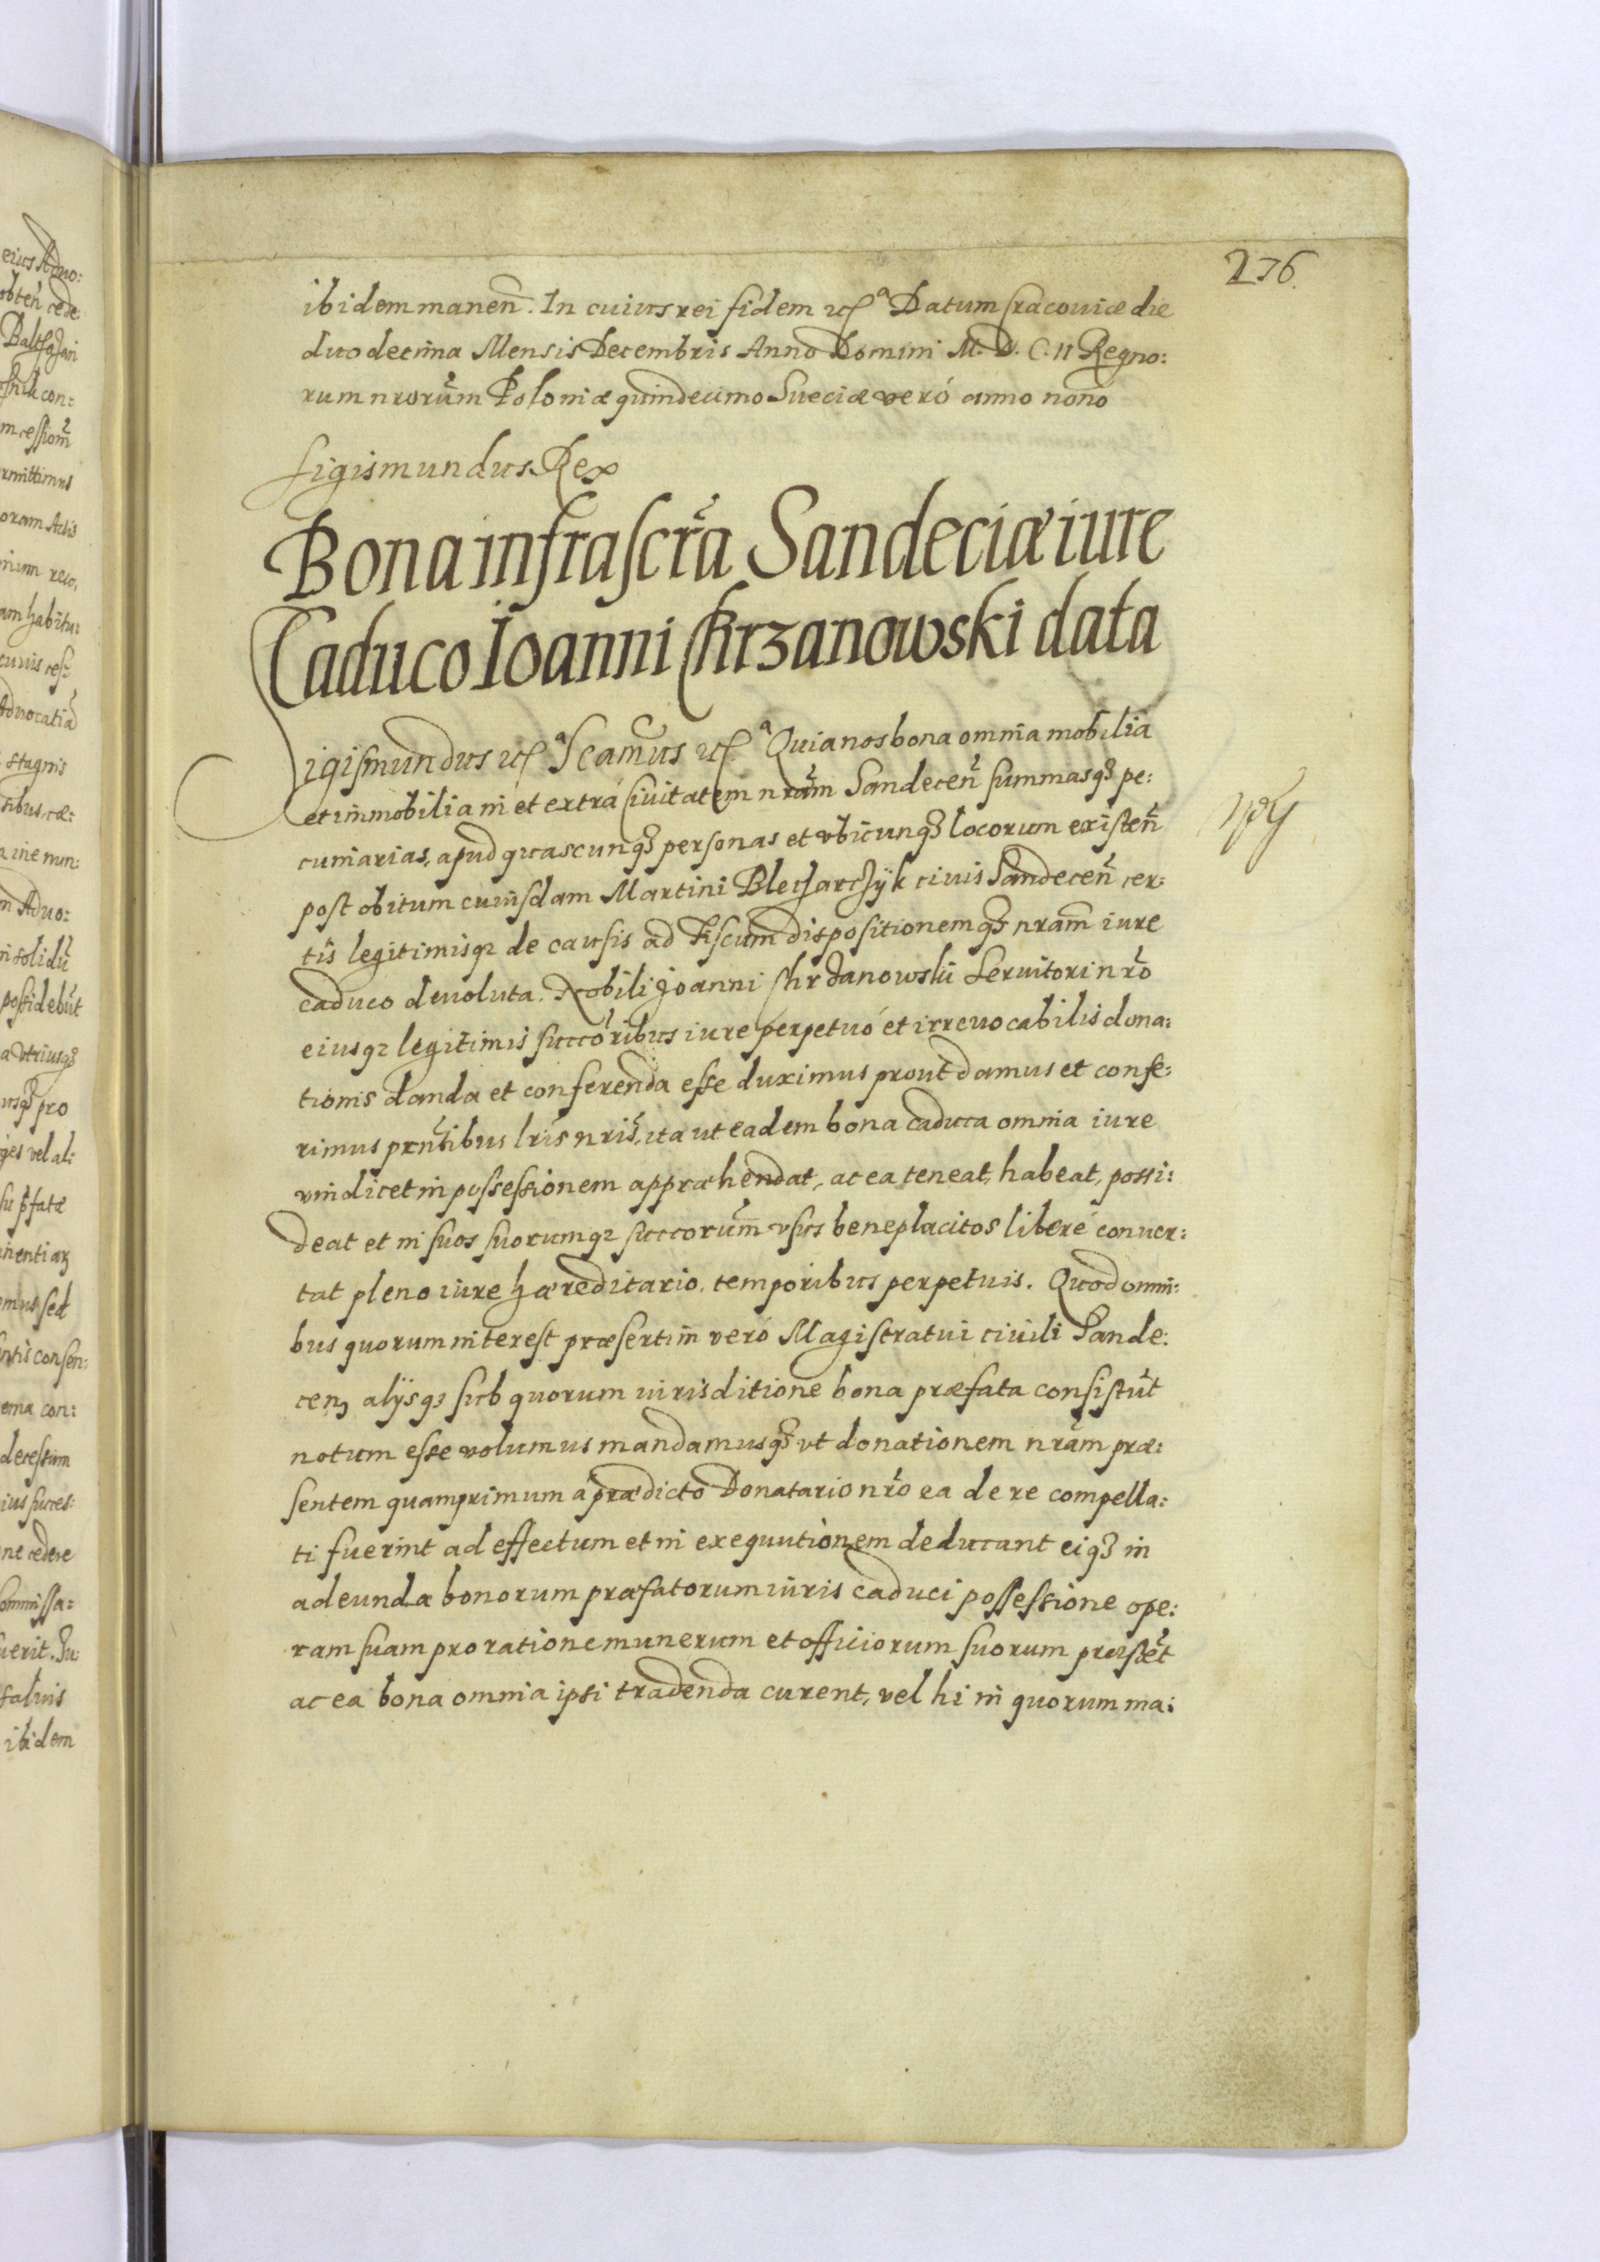 276.
ibidem manen̄. In cuius rei fidem etc̄ᵃ Datum Cracouiæ die
duodecima Mensis Decembris Anno Domini M. D. C. II Regno:
rum nrorūm Poloniæ quindecimo Sueciæ veró anno nono
Sigismundus Rex
Bona infrascr̄a Sandeciæ iure
Caduco Ioanni Chrzanowski data
Sigismundus etc̄ᵃ Scam̄us etc̄ᵃ Quia nos bona omnia mobilia
et immobilia in et extrá Ciuitatem nrām Sandecen̄ summasqȝ pe:
cuniarias, apud quascunqȝ personas et vbicunqȝ locorum existen̄
post obitum cuiusdam Martini Blecharczÿk ciuis Sandecen̄ cer:
tis legitimisqȝ de causis ad Fiscum dispositionemqȝ nram̄ iure
caduco deuoluta. Nobili Joanni Chrzanowski Seruitori nrō
eiusqȝ legitimis succōribus iure perpetuó et irreuocabilis dona:
tionis danda et conferenda esse duximus prout damus et confe:
rimus prn̄tibus lr̄is nrīs, ita ut eadem bona caduca omnia iure
vindicet in possessionem appræhendat, ac ea teneat, habeat, possi:
deat et in suos suorumqȝ succorūm vsus beneplacitos liberé conuer:
tat pleno iure hæreditario, temporibus perpetuis. Quod omni:
bus quorum interest præsertim veró Magistratui ciuili Sande:
cen, alijsqȝ sub quorum iurisditione bona præfata consistūt
notum esse volumus mandamusqȝ vt donationem nrām præ:
sentem quamprimum á prædicto Donatario nrō ea de re compella:
ti fuerint ad effectum et in exequutionem deducant eiqȝ in
adeunda bonorum præfatorum iuris caduci possessione ope:
ram suam pro ratione munerum et officiorum suorum præstēt
ac ea bona omnia ipsi tradenda curent, vel hi in quorum ma: